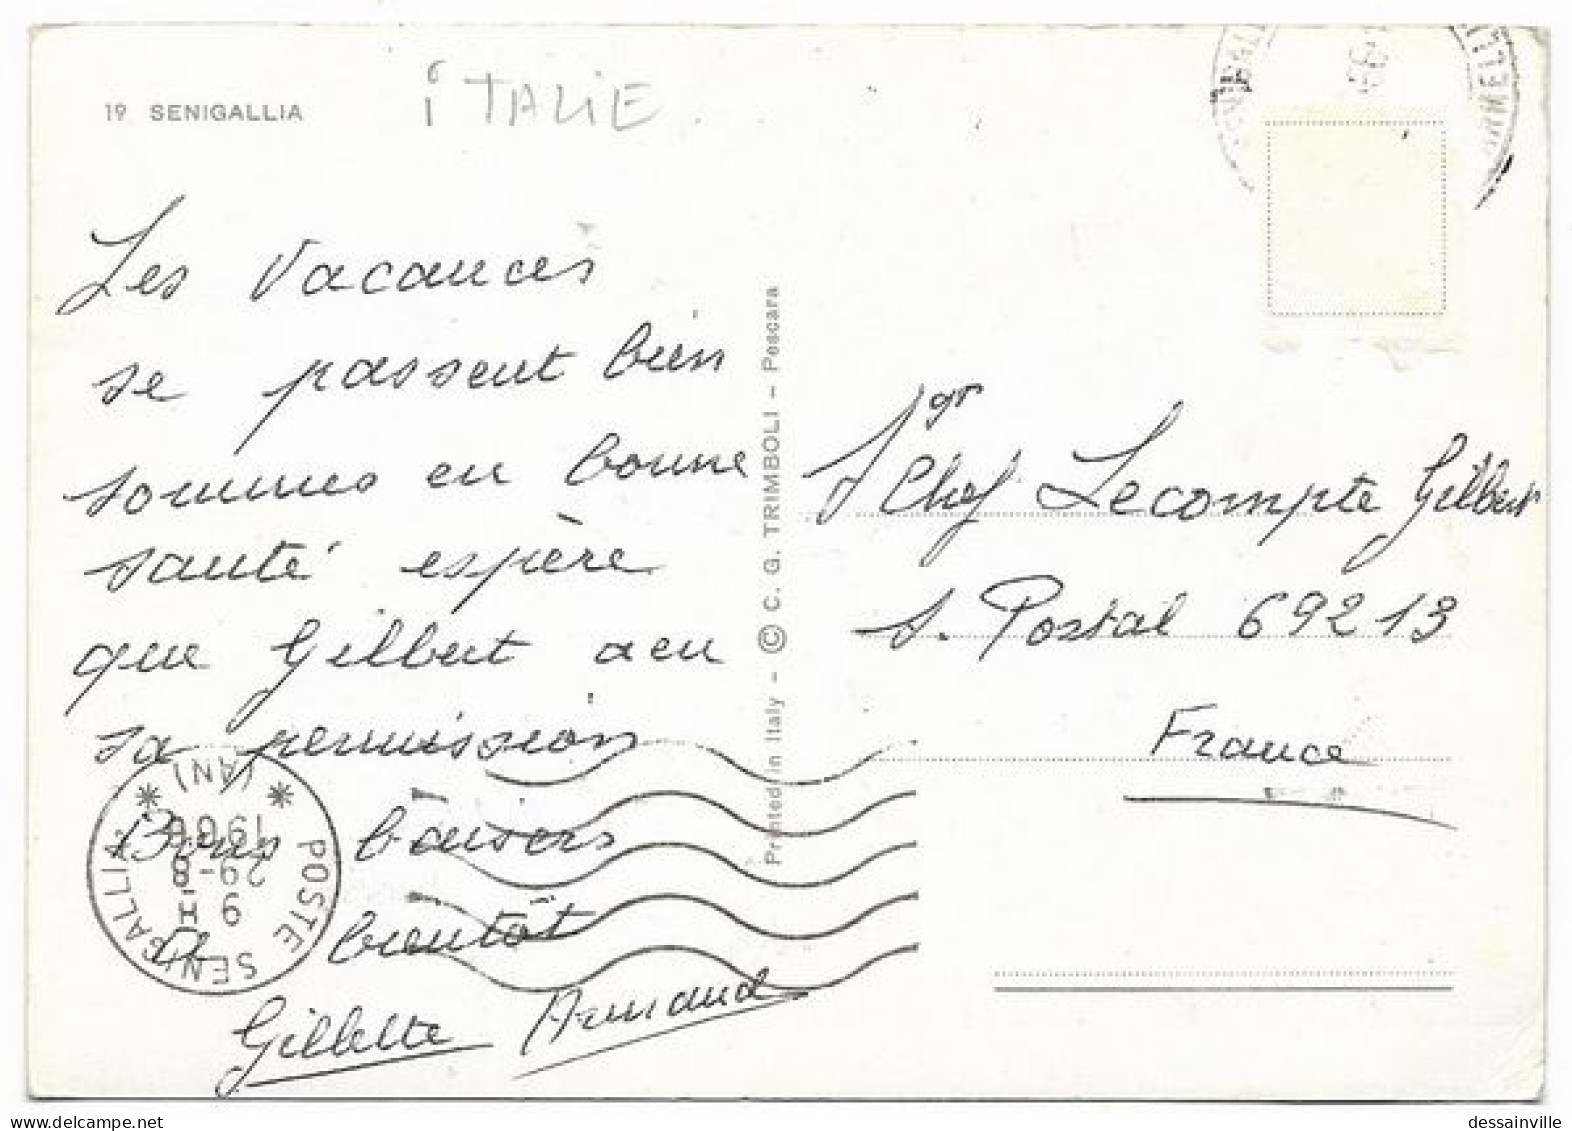 19 SENIGALLIA
iTALIE
Les vacances
se passent bien
sommes en bonne
santé espère
que Gilbert a eu
sa permission
Bons baisers
A bientôt
Gillette Armand
Printed in Italy - © C. G. TRIMBOLI - Pescara
Sgr
Chef Lecompte Gilbert
S. Postal 69213
France
POSTE SENIGALLIA
* (AN) *
9 H
29-8
dessainville